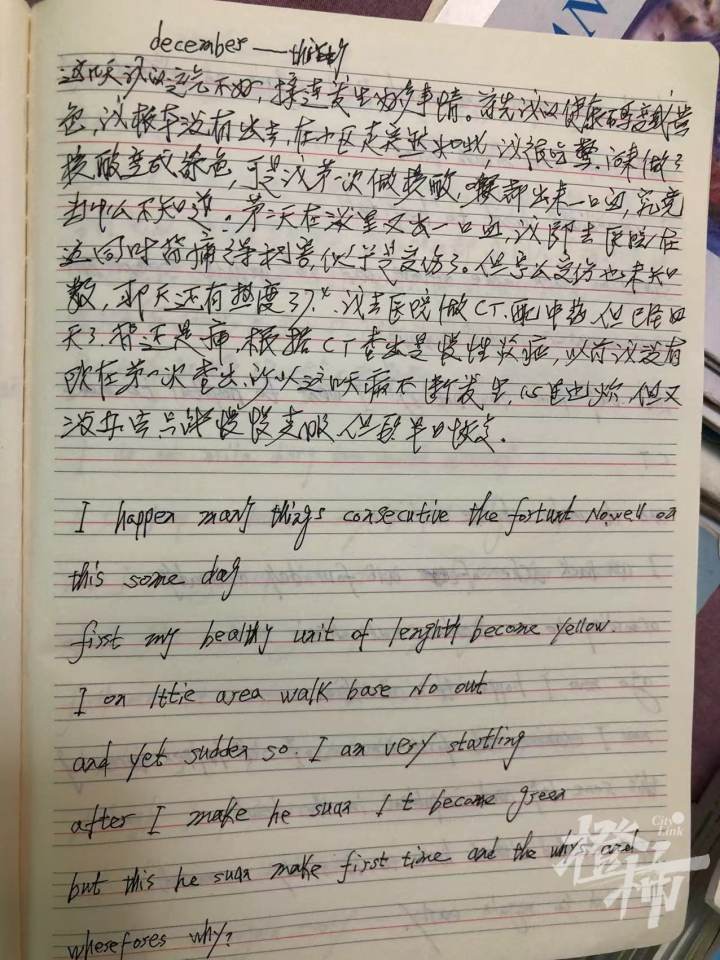 december — thirty
这几天我的运气不好，接连发生好多事情。首先我的健康码变成黄
色，我根本没有出去，在小区走突然如此，我很吃惊，后来做了
核酸变成绿色，可是我第一次做核酸，喉部出来一口血，究竟
为什么不知道。第二天在泼里又出一口血，我即去医院，在
这同时背痛得利害，似乎是受伤了。但怎么受伤也未知
数，那天还有热度37.，我去医院做CT，配中药，但已经四
天了，背还是痛，根据CT查出是慢性炎症，以前我没有
现在第一次查出，所以这几天病不断发生，心里也烦，但又
没办法只能慢慢克服，但愿早日恢复。
I happen many things consecutive the fortunt No.well on
this some day
first my healthy unit of lenghth become yellow.
I on lttie area walk base No out
and yet sudden so. I am very startling
after I make he suan It become green
but this he suan make first time and the whys and
wherefores why?
CityLink
橙柿